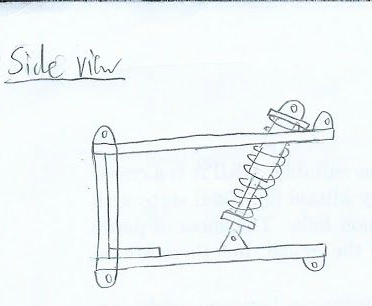 Side view